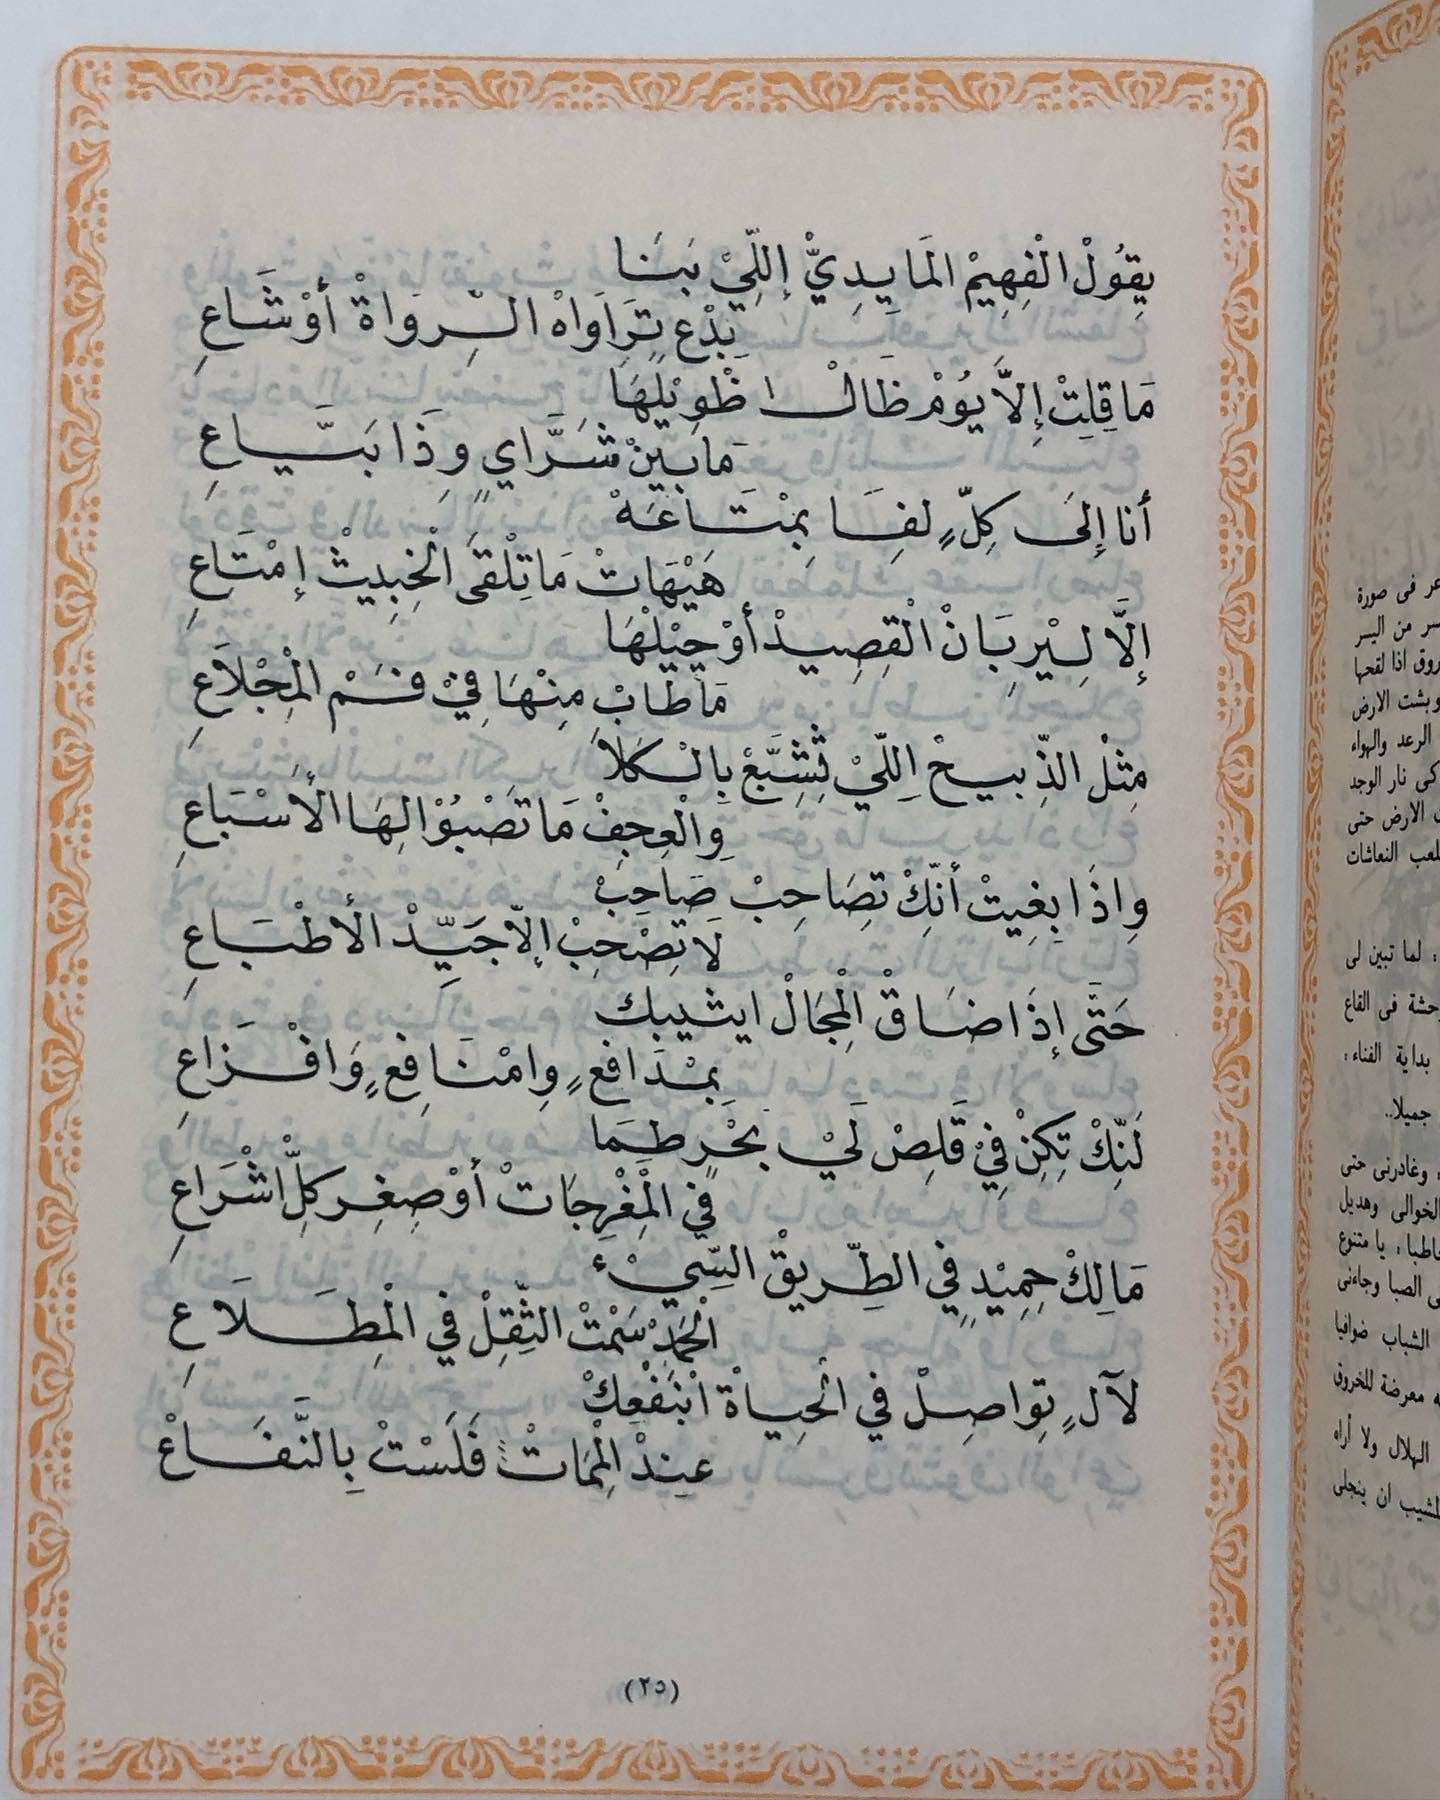 يِقُولْ الْفِهِيمْ المَايِدِيّْ إللِّيْ بَنَا
بِدْعٍ تَرَاوَاهْ الرِّوَاةْ أوْشَاعِ
مَا قِلِتْ إِلاَّ يُوْمْ ظَالْ اظْوِيْلِهَا
مَابَيْنْ شَرَّايٍ وِذَا بَيَّاعِ
أنا إِلَى كِلٍّ لِفَا بِمْتَاعَهْ
هَيْهَاتْ مَاتِلْقَى الْخِبِيثْ إمْتَاعِ
إلاَّ لِسْرِبَانْ الْقِصِيدْ أوْجِيْلَهَا
مَاطَابْ مِنْهَا فِيْ فَمْ الْمِجْلاَعِ
مِثْلْ الذِّبيحْ اِللِّيْ تِشَبَّعْ بِالْكَلاَ
وِالْعِجِفْ مَاتَصْبُوْ الِهَا الأَسْبَاعِ
وِاذَا بِغِيتْ أنّكْ تِصَاحِبْ صَاحِبْ
لاَتِصْحَبْ إلاّ جَيِّدْ الأطْبَاعِ
حَتَّى إذَا ضَاقْ الْمِجَالْ ايثيبك
بمْدَافعٍ وِامْنَافِعٍ وَافْزَاعِ
لَنِّكْ تِكِنْ فِيْ قَلِصْ لَيْ بَحْرٍ طمَا
في الْمِغْرِجَاتْ أوْصِغِر كِلّ اشْرَاعِ
مَالِكْ حِمِيْدٍ فِي الطِّرِيقْ السِّيْء
الْحَمِدْ سَمْتْ الثِّقِلْ في الْمِطَلاَعِ
لآلٍ تِوَاصِلْ في الْحِيَاةْ ابْنَفْعِكْ
عِندْ الْمِمَاتْ فَلَسْتْ بِالنَّفَاعْ
(٢٥)
عر فى صورة
سر من اليسر
روق اذا لفحها
وبشت الارض
الرعد والهواء
كى نار الوجد
الارض حتى
لعب النعاشات
: لما تبين لى
رحشة فى القاع
بداية الفناء :
جميلا..
، وغادرنى حتى
لخوالى وهديل
خاطبا : يا متنوع
ى الصبا وجاءنى
الشباب ضوافيا
ه معرضة للخروق
الهلال ولا أراه
لمشيب ان ينجلى